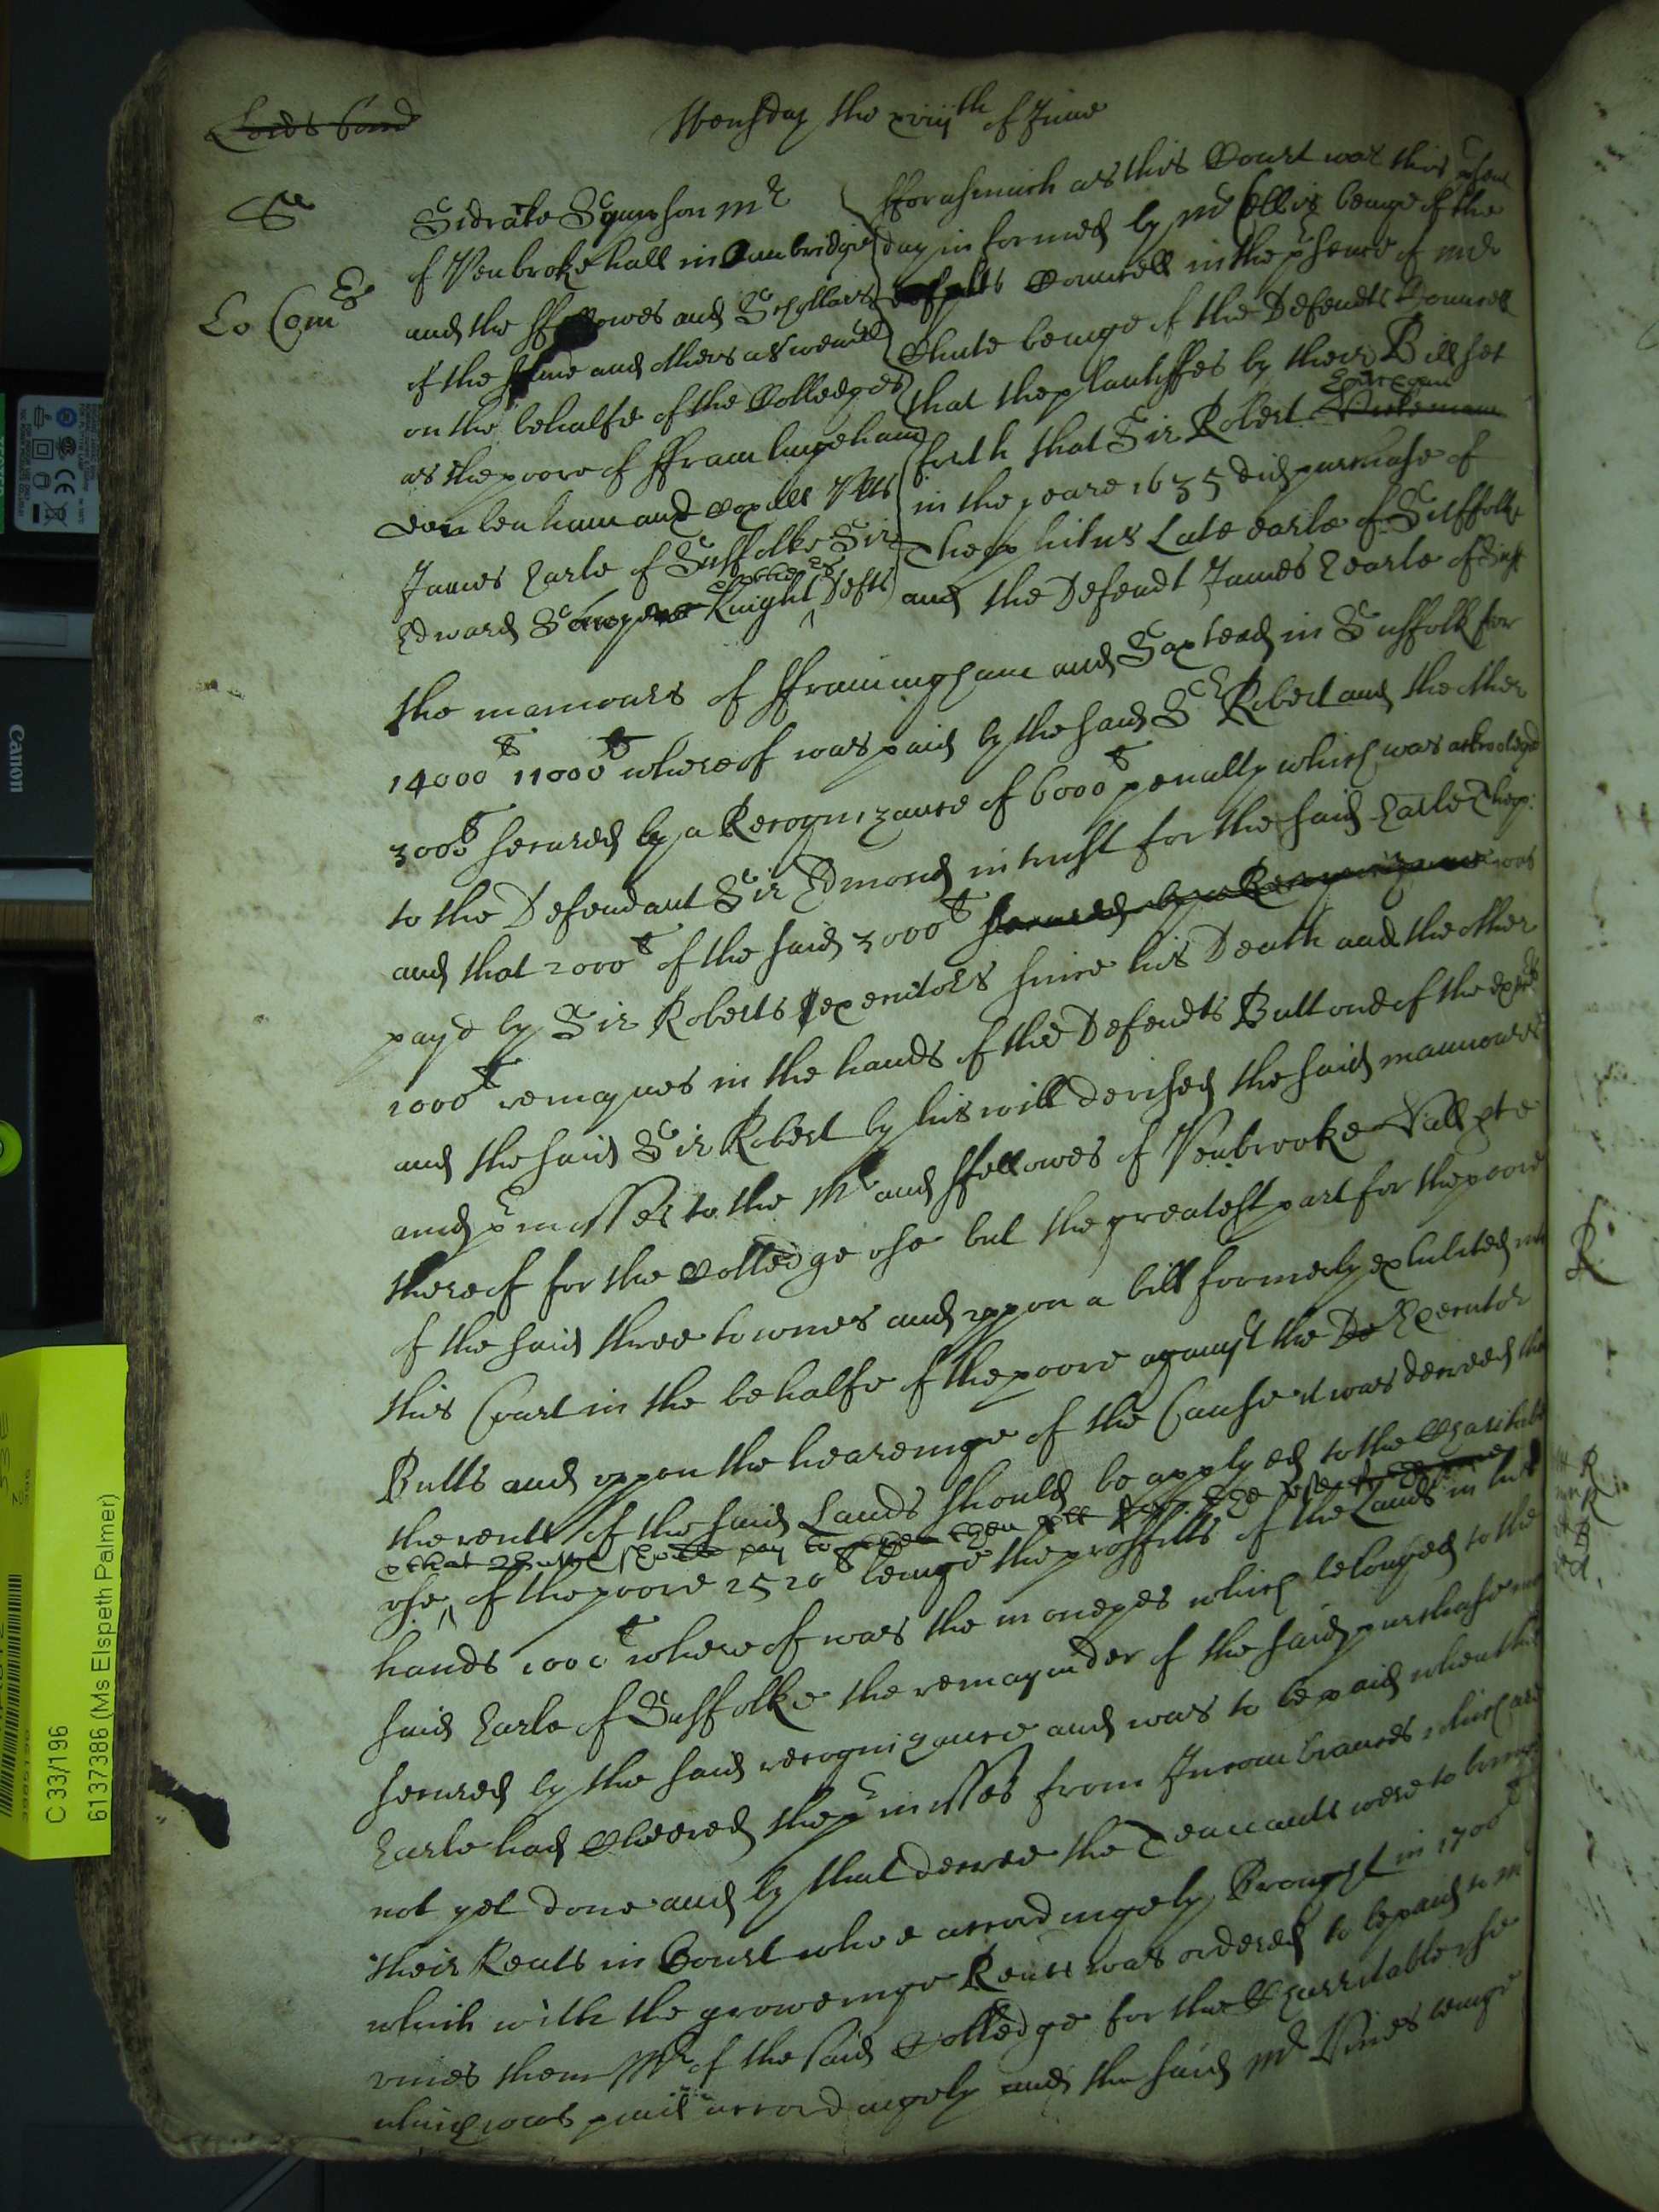 Wensday the xviijth of June
Lords Com
Se
Lo Comrs
Sidrake Sympson Mr
of Penbroke hall in Cambridge
and the ffellowes and Schollars
of the same and others as well
on the behalfe of the Colledge
as the poore of fframlingeham
Debenham and Coxall Plts
James Earle of Suffolke Sir
Edward knight Defts
fforasmuch as this Court was this present
day informed by Mr Ellis beinge of the
plts Councell in the presence of Mr
Chute beinge of the Defendts Councell
that the plantiffes by their Bill set
forth that Sir Robert Hitcham
in the yeare 1635 did purchase of
Theophilus Late earle of Suffolke
and the Defendt James Earle of Suff
the mannours of fframingham and Saxtead in Suffolk for
14000 11000 whereof was paid by the said Sr Robert and the other
3000 secured by a Recognizance of 6000 penalty which was acknoledged
to the Defendant Sir Edmond in trust for the said Earle Theop:
and that 2000 of the said 3000 secured by a Recognizance was
payd by Sir Roberts executors since his Death and the other
1000 remaynes in the hands of the Defendts Butt one of the exrs
and the said Sir Robert by his will devised the said mannours
and premisses to the Mr and ffellowes of Penbrooke Hall pte
thereof for the Colledge use but the greatest part for the poore
of the said three townes and uppon a bill formerly exhibited into
this Court in the behalfe of the poore against the De Executor
Butts and uppon the heareinge of the Cause it was decreed that
the rents of the said Lands should be applyed to the Charitable
should pay
use of the poore 2520 beinge the proffitts of the Lands in his
hands 1000 whereof was the moneyes which belonged to the
said Earle of Suffolke the remaynder of the said purchase
secured by the said recognizance and was to be paid when the
Earle had Cleered the premisses from Incombrances which are
not yet done and by that decree the Tennants were to bringe
their Rents in Court whoe accordingely Brought in 1700
which with the groweinge Rents was ordered to be paid to Mr
Vines then Mr of the said Colledge for the Charritable use
which was paid accordingely and the said Mr Vines beinge
Canon
C 33/196
6137386 (Ms Elspeth Palmer)